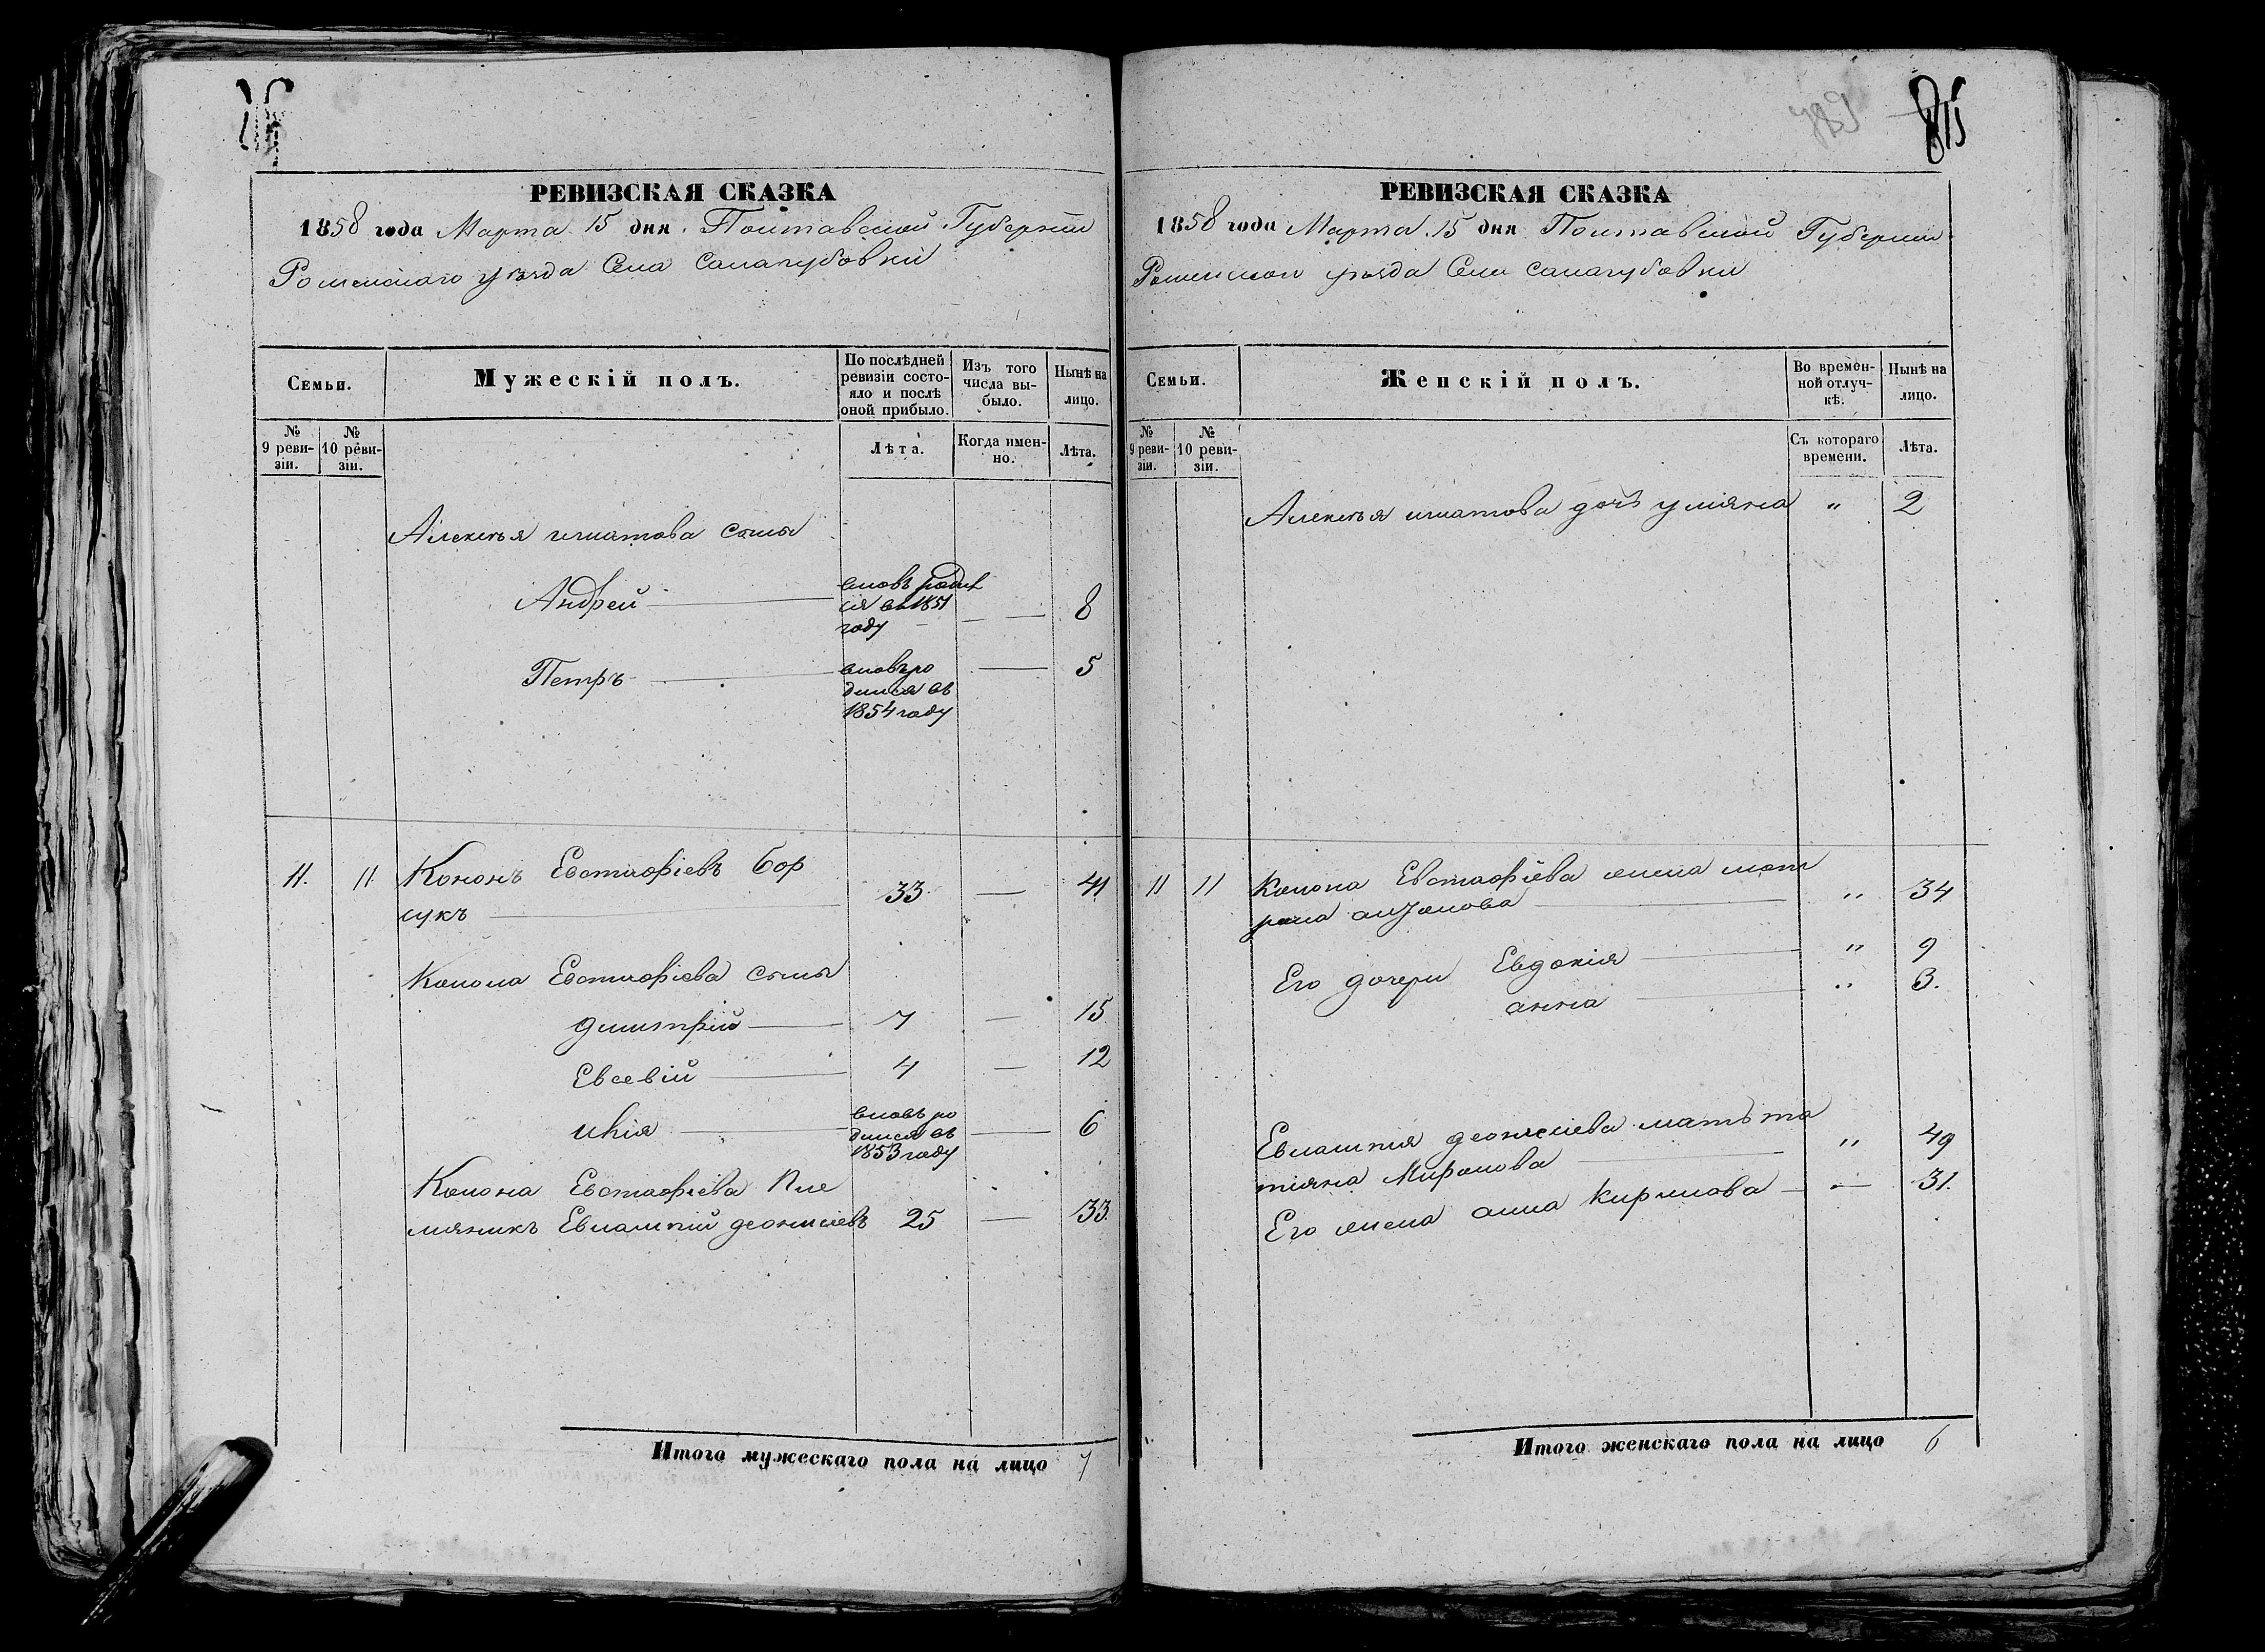 815
РЕВИЗСКАЯ СКАЗКА
1858 года Марта 15 дня Полтавской Губернии
Роменскаго уѣзда Села Салагубовки
Семьи.
Мужескій полъ.
По послѣдней ревизіи состо-
яло и послѣ
оной прибыло.
Изъ того
числа вы-
было.
Нынѣ на
лицо.
№
9 реви-
зіи.
№
10 реви-
зіи.
Лѣта.
Когда имен-
но.
Лѣта.
Алексѣя игнатова сыны
Андрей
вновь родил
ся въ 1851
году
8
Петръ
вновь ро
дился въ
1854 году
5
11. 11. Кононъ Евстафіевъ Бор
сукъ 33 41
Конона Евстафіева сыны
Димитрій 7 15
Евсевій 4 12
вновь ро
дился въ
1853 году
6
Конона Евстафіева Пле
мяникъ Евлампій деонисіевъ 25 33.
Итого мужескаго пола на лицо 7
РЕВИЗСКАЯ СКАЗКА
1858 года Марта 15 дня Полтавской Губернии
Роменскои уѣзда Села салагубовки
Семьи.
Женскій полъ.
Во времен-
ной отлуч-
кѣ.
Нынѣ на
лицо.
№
9 реви-
зіи.
№
10 реви-
зіи.
Съ котораго
времени.
Лѣта.
Алексѣя игнатова дочь улияна " 2
11 11 Конона Евстафіева жена мот
рона антонова " 34
Его дочери Евдокія " 9
анна " 3.
Евлампия деонисиева мать та
тіяна Миронова " 49
Его жена анна Кирилова — 31.
Итого женскаго пола на лицо 6